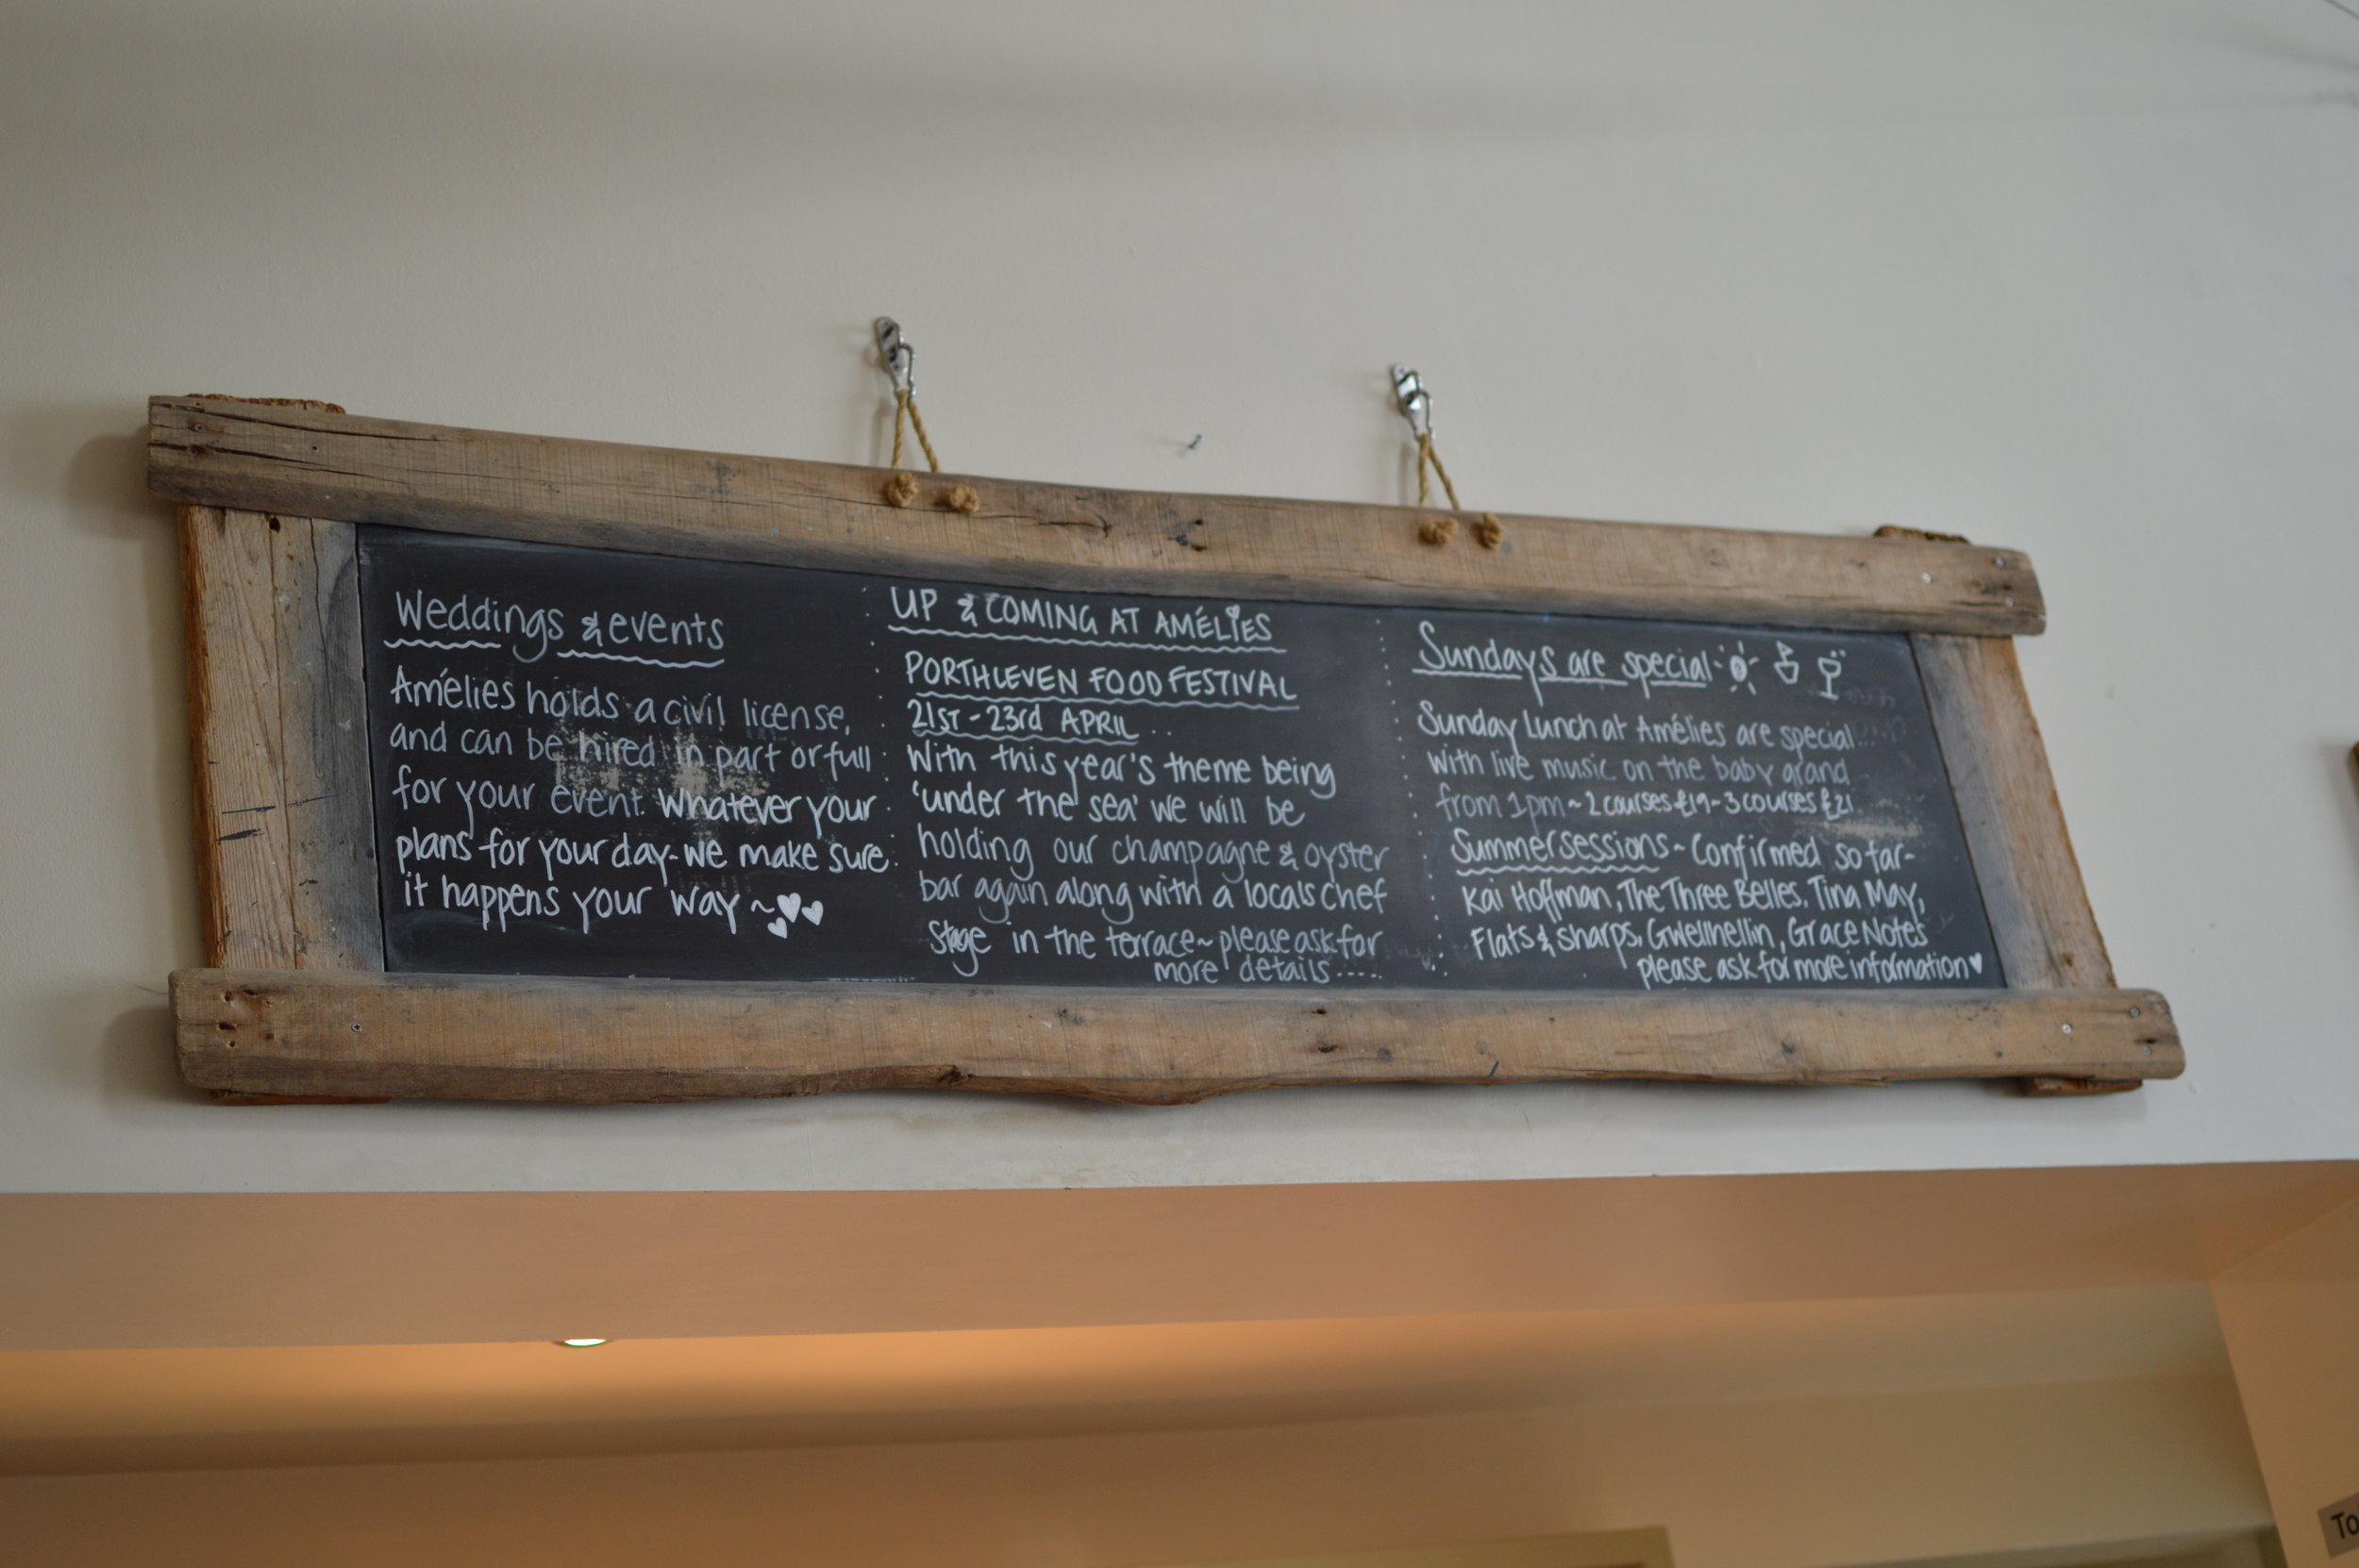 Weddings & events
Amélies holds a civil license,
and can be hired in part or full
for your event. Whatever your
plans for your day - we make sure
it happens your way ~
UP & COMING AT AMÉLIES
PORTHLEVEN FOOD FESTIVAL
21ST - 23rd APRIL ..
With this year's theme being
'under the sea' we will be
holding our champagne & oyster
bar again along with a locals chef
Stage in the terrace ~ please ask for
more details .....
Sundays are special
Sunday Lunch at Amélies are special...
with live music on the baby grand
from 1pm ~ 2 courses £19 ~ 3 courses £21
Summer sessions ~ Confirmed so far -
Kai Hoffman, The Three Belles, Tina May,
Flats & Sharps, Gwelhellin, Grace Notes
please ask for more information
To